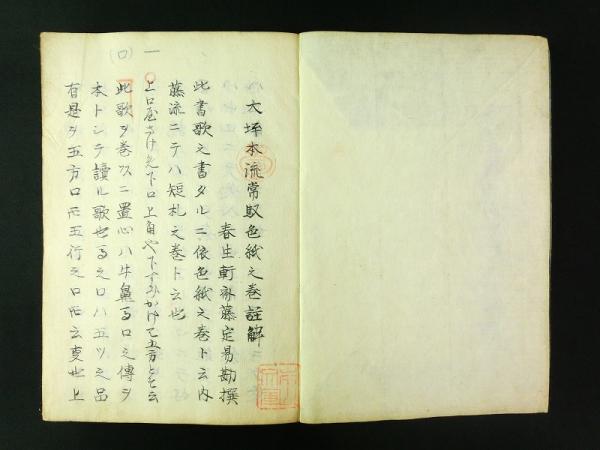 大坪本流常馭色紙之巻註解
春生軒斎藤定易勘撰
此書歌之書タルニ依色紙之巻ト云内
藤流ニテハ短札之巻ト云也
一
上口屋さけ先下口上角や下すみかけて五方とそ云
(口)
此歌ヲ巻 ニ置心ハ牛鼻馬口之傳ヲ
本トシテ讀ル歌也馬之口ハ五ツ之品
有是ヲ五方口 五行之口 云夏也上